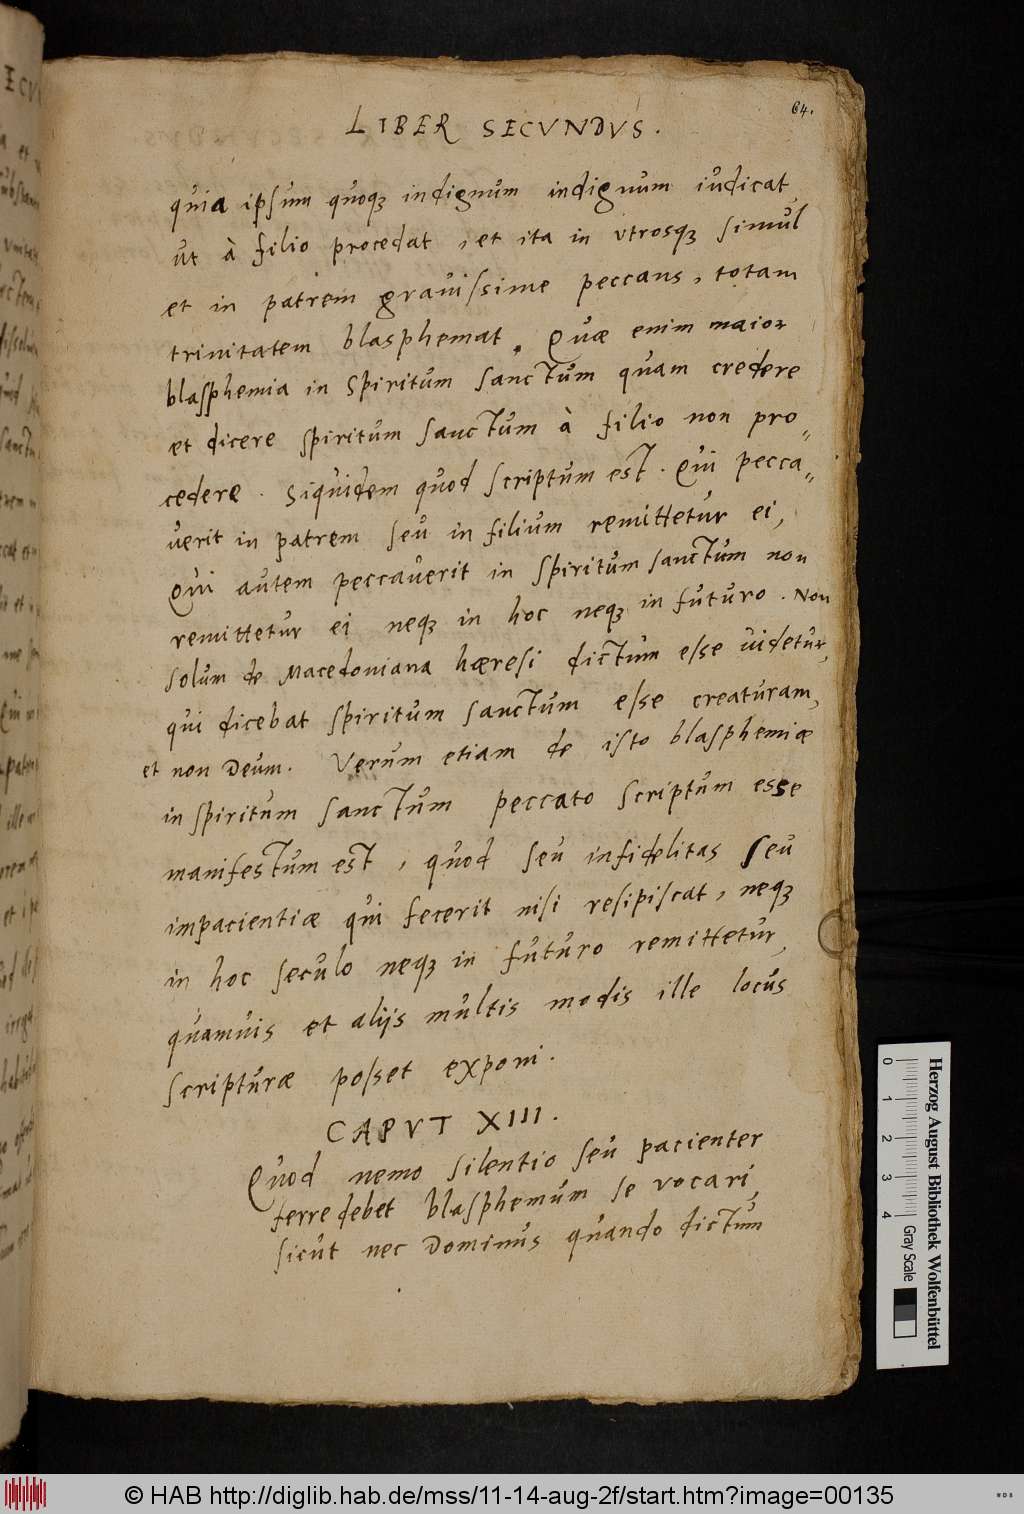 64.
LIBER SECVNDVS.
quia ipsum quoqꝫ indignum indignum iudicat
ut à filio procedat, et ita in utrosqꝫ simul
et in patrem grauissime peccans, totam
trinitatem blasphemat. Quæ enim maior
blasphemia in Spiritum sanctum quam credere
et dicere spiritum sanctum à filio non pro
cedere. Siquidem quod scriptum est. Qui pecca
uerit in patrem seu in filium remittetur ei,
Qui autem peccauerit in spiritum sanctum non
remittetur ei neqꝫ in hoc neqꝫ in futuro. Non
solum de Macedoniana hæresi dictum esse uidetur,
qui dicebat spiritum sanctum esse creaturam,
et non Deum. Verum etiam de isto blasphemiæ
in spiritum sanctum peccato scriptum esse
manifestum est, quod seu infidelitas seu
impacientiæ qui fecerit nisi resipiscat, neqꝫ
in hoc seculo neqꝫ in futuro remittetur,
quamuis et alijs multis modis ille locus
scripturæ posset exponi.
CAPVT XIII.
Quod nemo silentio seu pacienter
ferre debet blasphemum se vocari,
sicut nec Dominus quando dictum
Herzog August Bibliothek Wolfenbüttel
0 1 2 3 4 Gray Scale
© HAB http://diglib.hab.de/mss/11-14-aug-2f/start.htm?image=00135